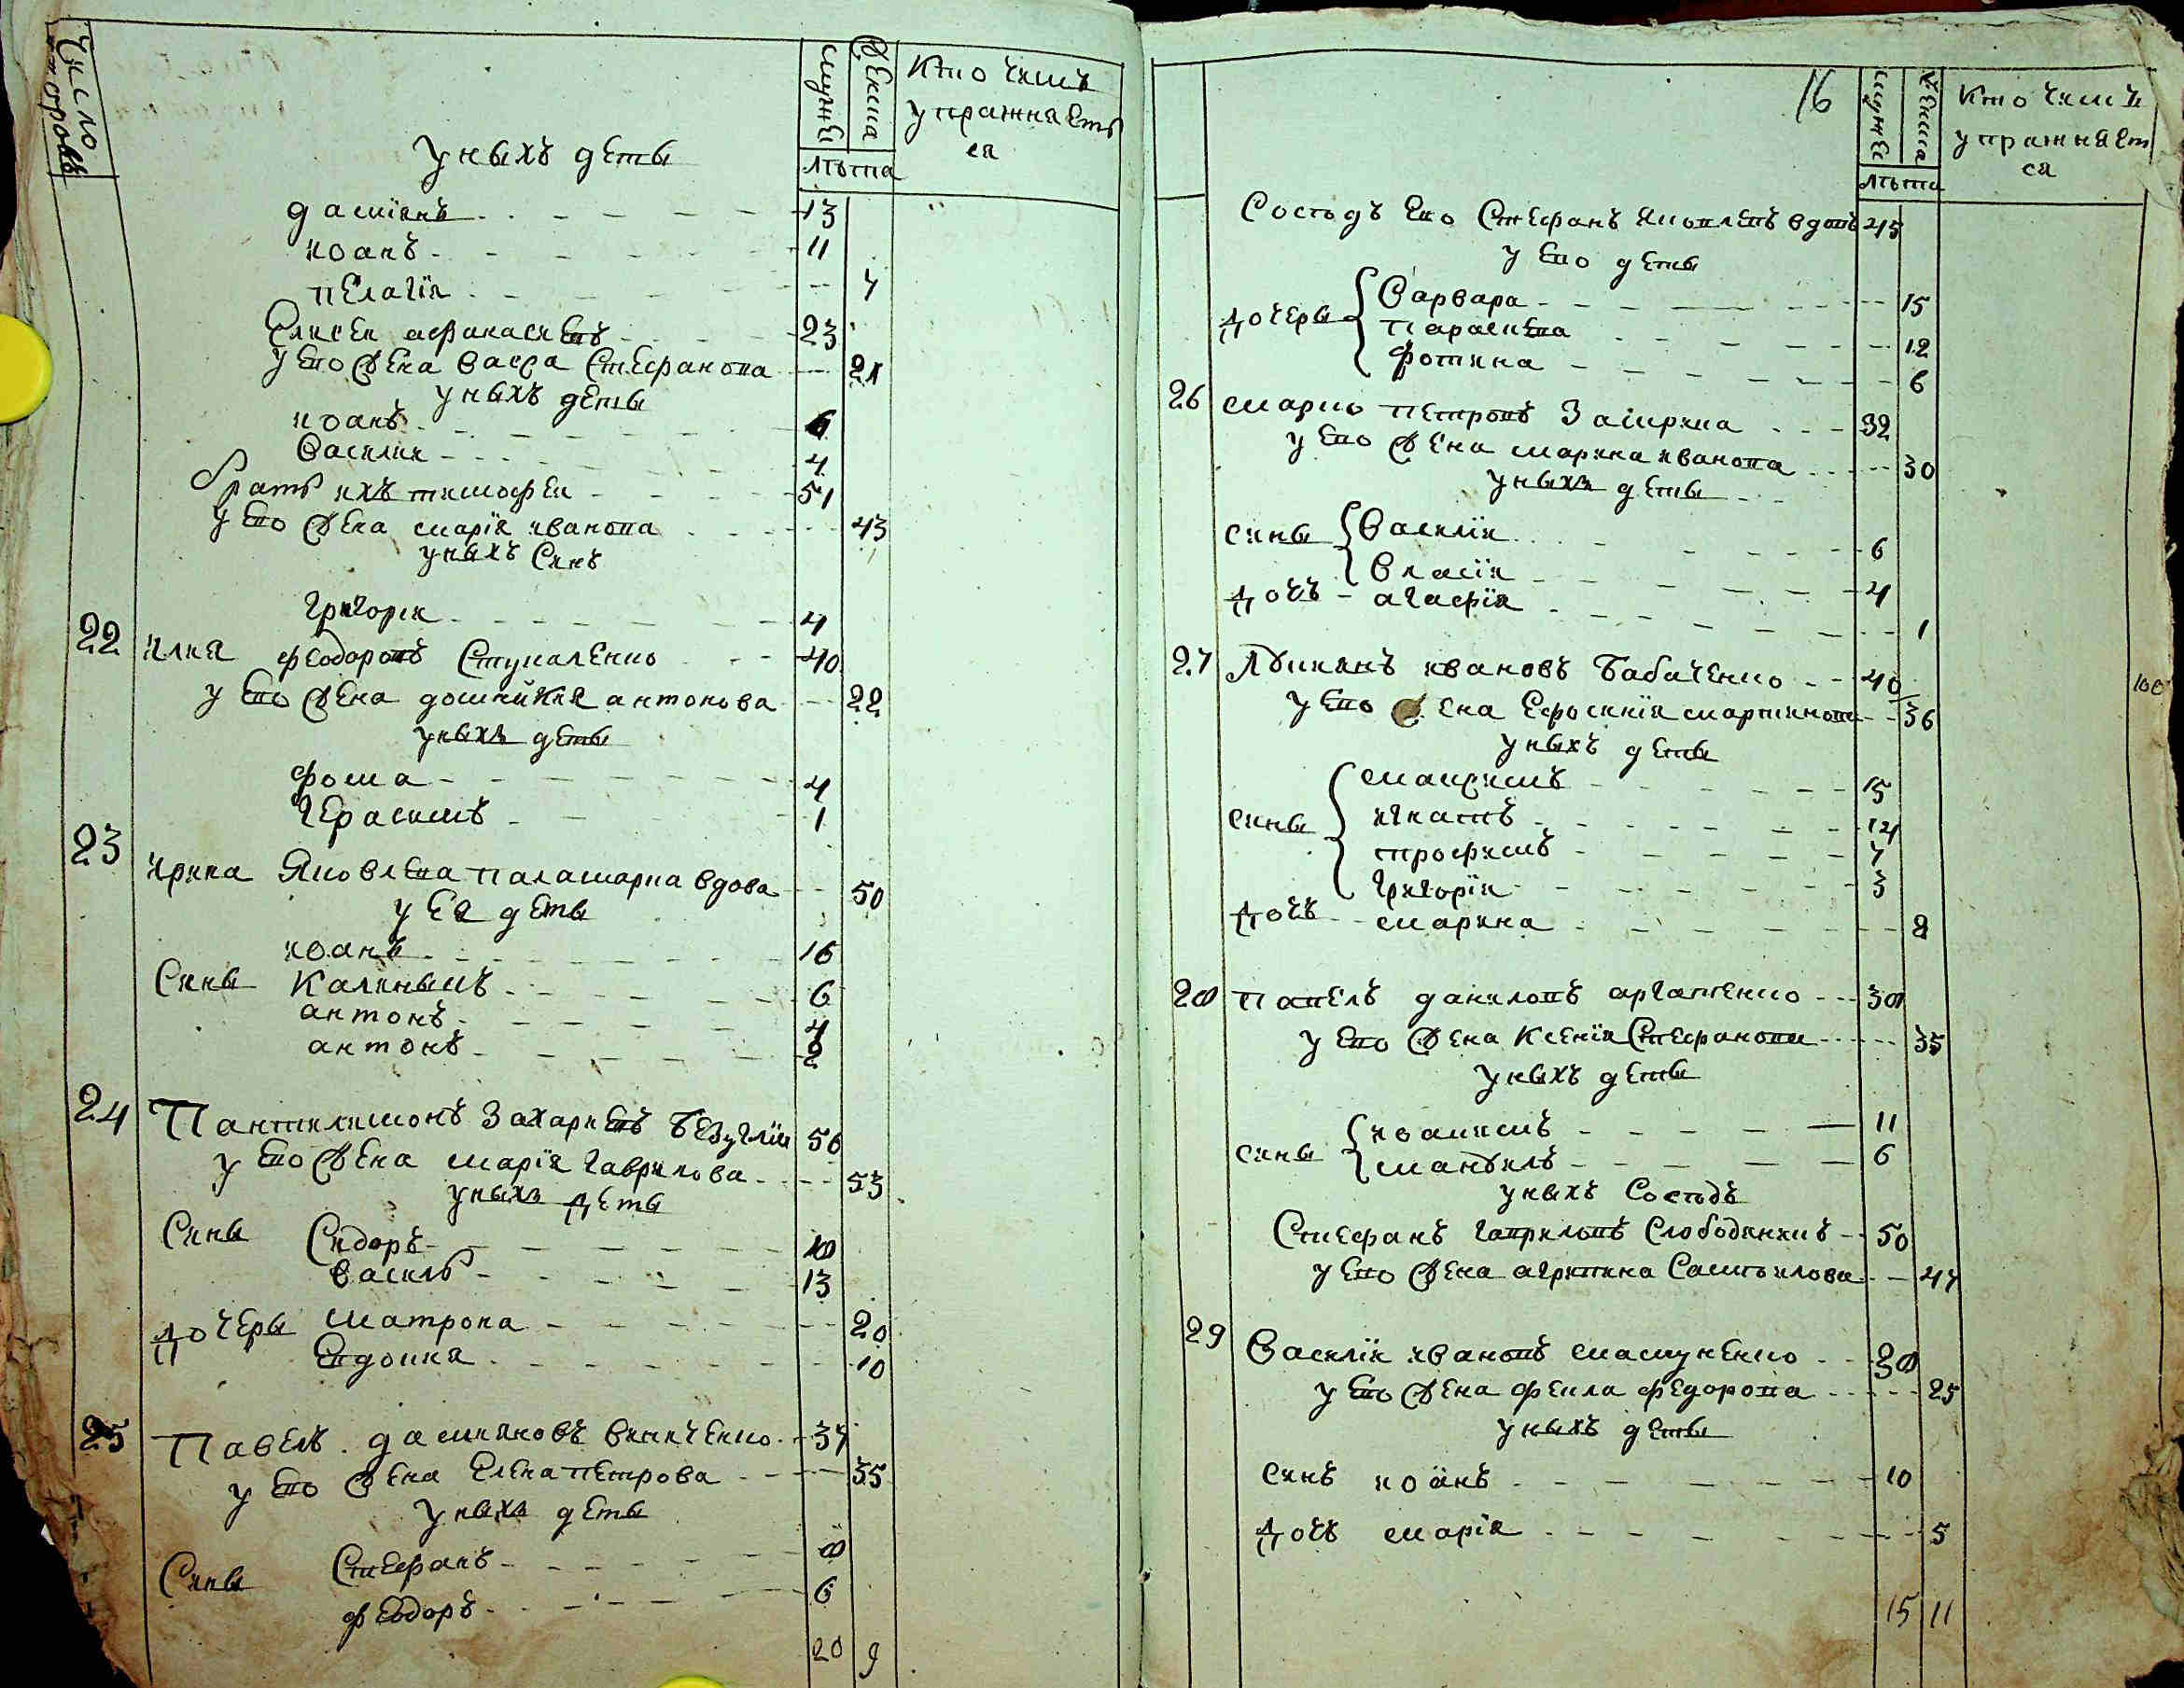 Число
дворовъ
мужес
женска
Кто чемъ
упражняеть
ся
лѣта
У ныхъ деты
дамїянъ 13
иоанъ 11
пелагїя 7
Елисей афанасиевъ 23
у его жена васса Стефанова 21
у ныхъ деты
иоанъ 6
Василии 4
братъ ихъ тимофеи 51
у его жена марїя иванова 43
у ныхъ Синъ
григорїи 4
22 илия феодоровъ Ступаленко 40
у его жена домникия антонова 22
у ныхъ деты
фома 4
герасимъ 1
23 ирина Яковлева паламарка вдова 50
у ея деты
иоанъ 16
Сины Калиныкъ 6
антонъ 4
антонъ 2
24 Пантилимонъ Захариевъ Безуглїи 56
у его жена марїя гаврилова 53
у ныхъ деты
Сины Сидоръ 18
василь 13
дочеры матрона 20
Евдокия 10
25 Павелъ дамияновъ виниченко 37
у его жена Елена петрова 35
у ныхъ деты
Сины Стефанъ 8
феодоръ 6
20 9
16
мужес
женска
Кто чемъ
упражняет
ся
лѣта
Сосѣдъ его Стефанъ яковлевъ вдовъ 45
у его деты
дочеры Варвара 15
Параскева 12
фотина 6
26 марко петровъ Замрика 32
у его жена марина иванова 30
у ныхъ деты
сины Василїи 6
Власїи 4
дочъ агафїя 1
27 Лукиянъ ивановъ Бабаченко 40
у его жена Ефросинїя мартинова 36
у ныхъ деты
сины максимъ 15
игнатъ 12
трофимъ 7
григорїи 3
дочъ марина 8
28 павелъ даниловъ аргатенко 38
у его жена Ксенїя Стефанова 35
у ныхъ деты
сины иоакимъ 11
мануилъ 6
у ныхъ Сосѣдъ
Стефанъ гавриловъ Слободяникъ 50
у его жена агрипина Самоилова 47
29 Василїи ивановъ мамуненко 30
у его жена фекла федорова 25
у ныхъ деты
синъ иоанъ 10
дочъ марїя 5
15 11
100